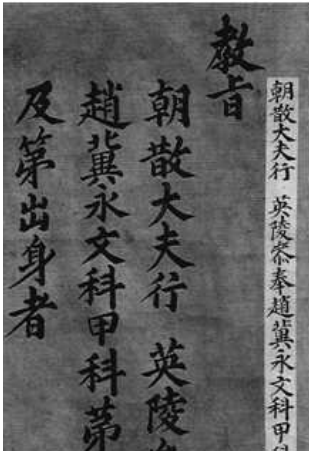 朝散大夫行 英陵叅奉趙冀永文科甲科
教旨
朝散大夫行 英陵
趙冀永文科甲科第
及第出身者